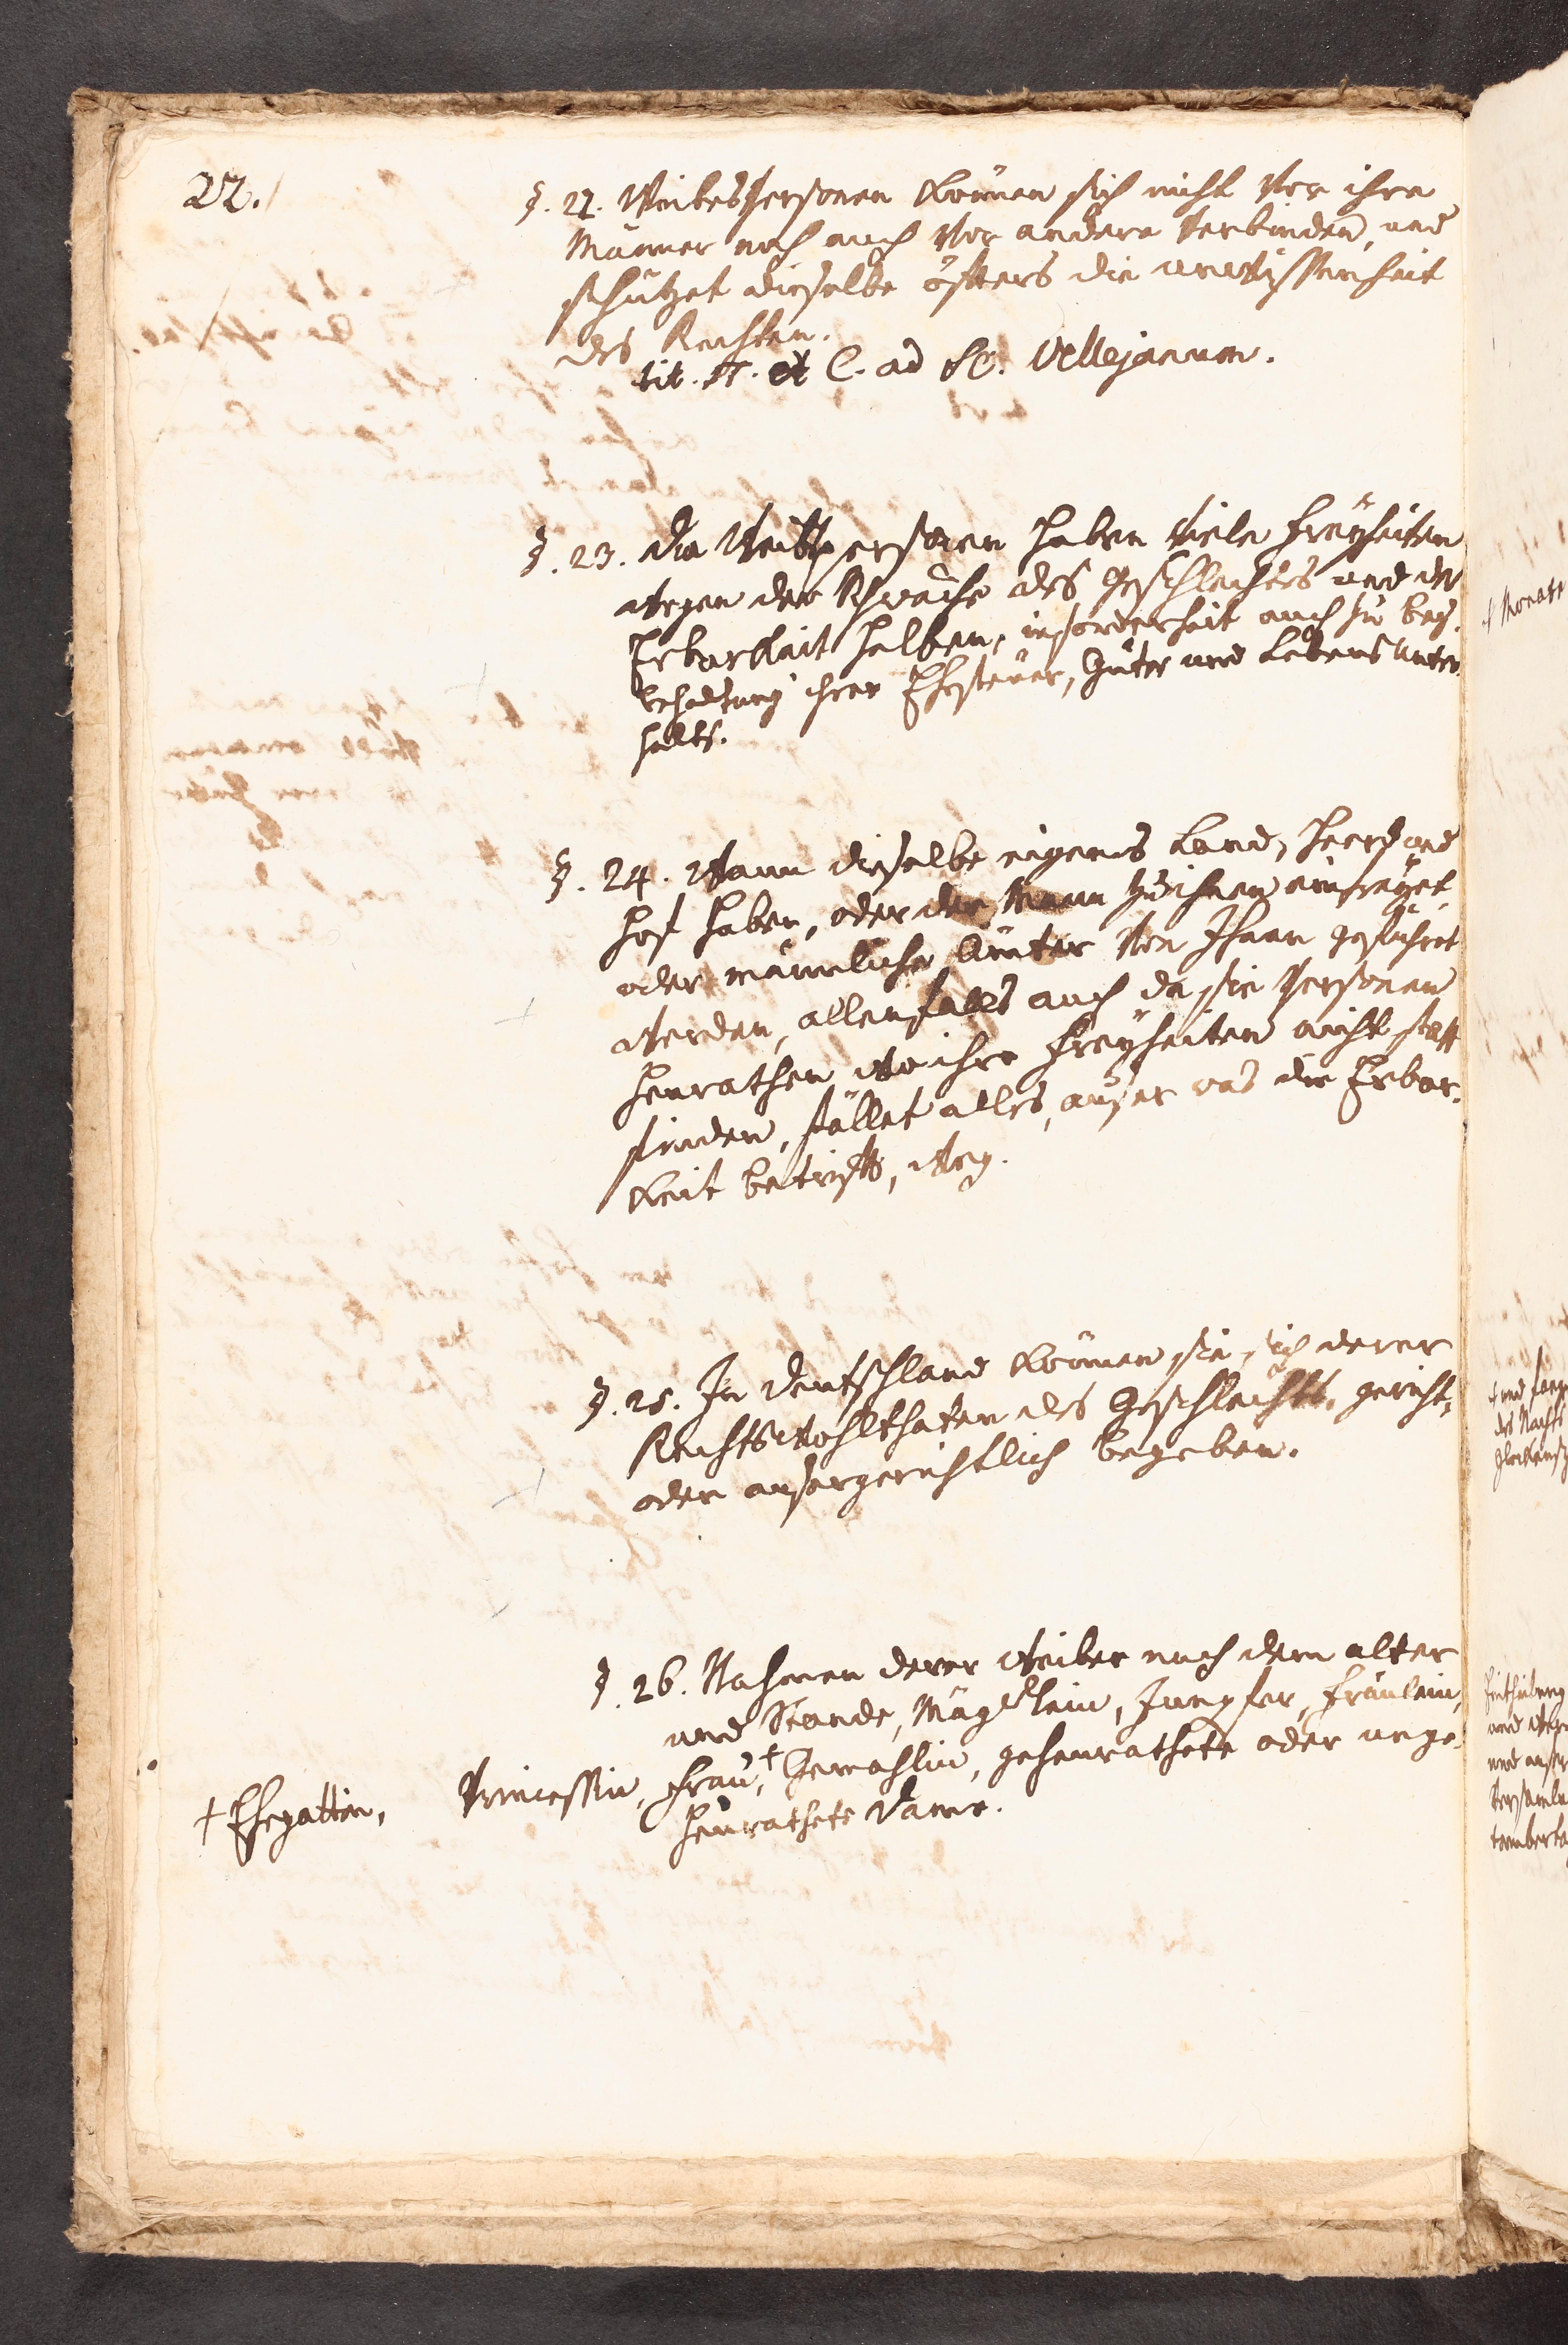 22.
§. 22. Weibespersonen können sich nicht vor ihre
Männer noch auch vor andere verbinden, und
schützet dieselbe öfters die unwißenheit
des Rechten.
tit. ff. et C. ad SC. Vellejanum.
§. 23. die Weibspersonen haben viele freyheiten
wegen der schwäche des Geschlechts und der
Erbarkeit halben, insonderheit auch zu bey-
behaltung ihrer Ehesteuer, Güter und Lebens unter-
halts.
§. 24. Wann dieselbe eigenes Land, heerd und
hof haben, oder der Mann zu ihnen einfreyet,
oder männliche Ämter von Ihnen geführet
werden, allenfalls auch da sie Personen
heurathen wo ihre freyheiten nicht statt
finden, fället alles, außer was die Erbar-
keit betrifft, weg.
§. 25. In deutschland können sie sich derer
Rechtswohlthaten des Geschlechts, gericht-
oder außergerichtlich begeben.
§. 26. Nahmen derer Weiber nach dem alter
und Stande, Mägdlein, Jungfer, fräulein,
Princessin, frau, † Gemahlin, geheurathete oder unge-
heurathete Dame.
† Ehegattin,
† Monate
† und
des Nachts
und
und